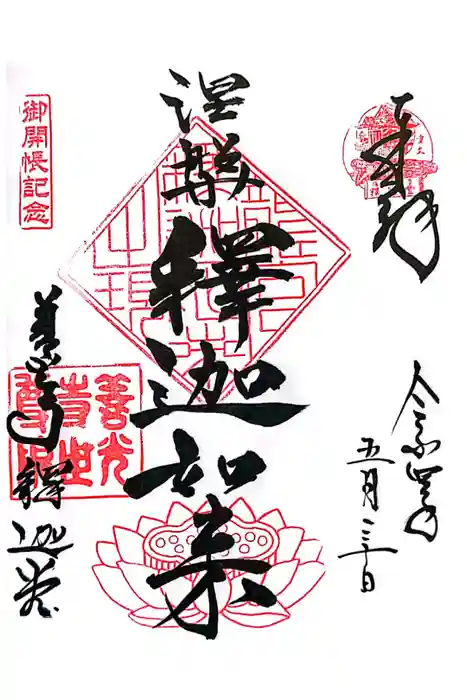 奉拝
令和四年
五月三日
涅槃釋迦如来
御開帳記念
善光寺釋迦堂
善光
寺世
尊院